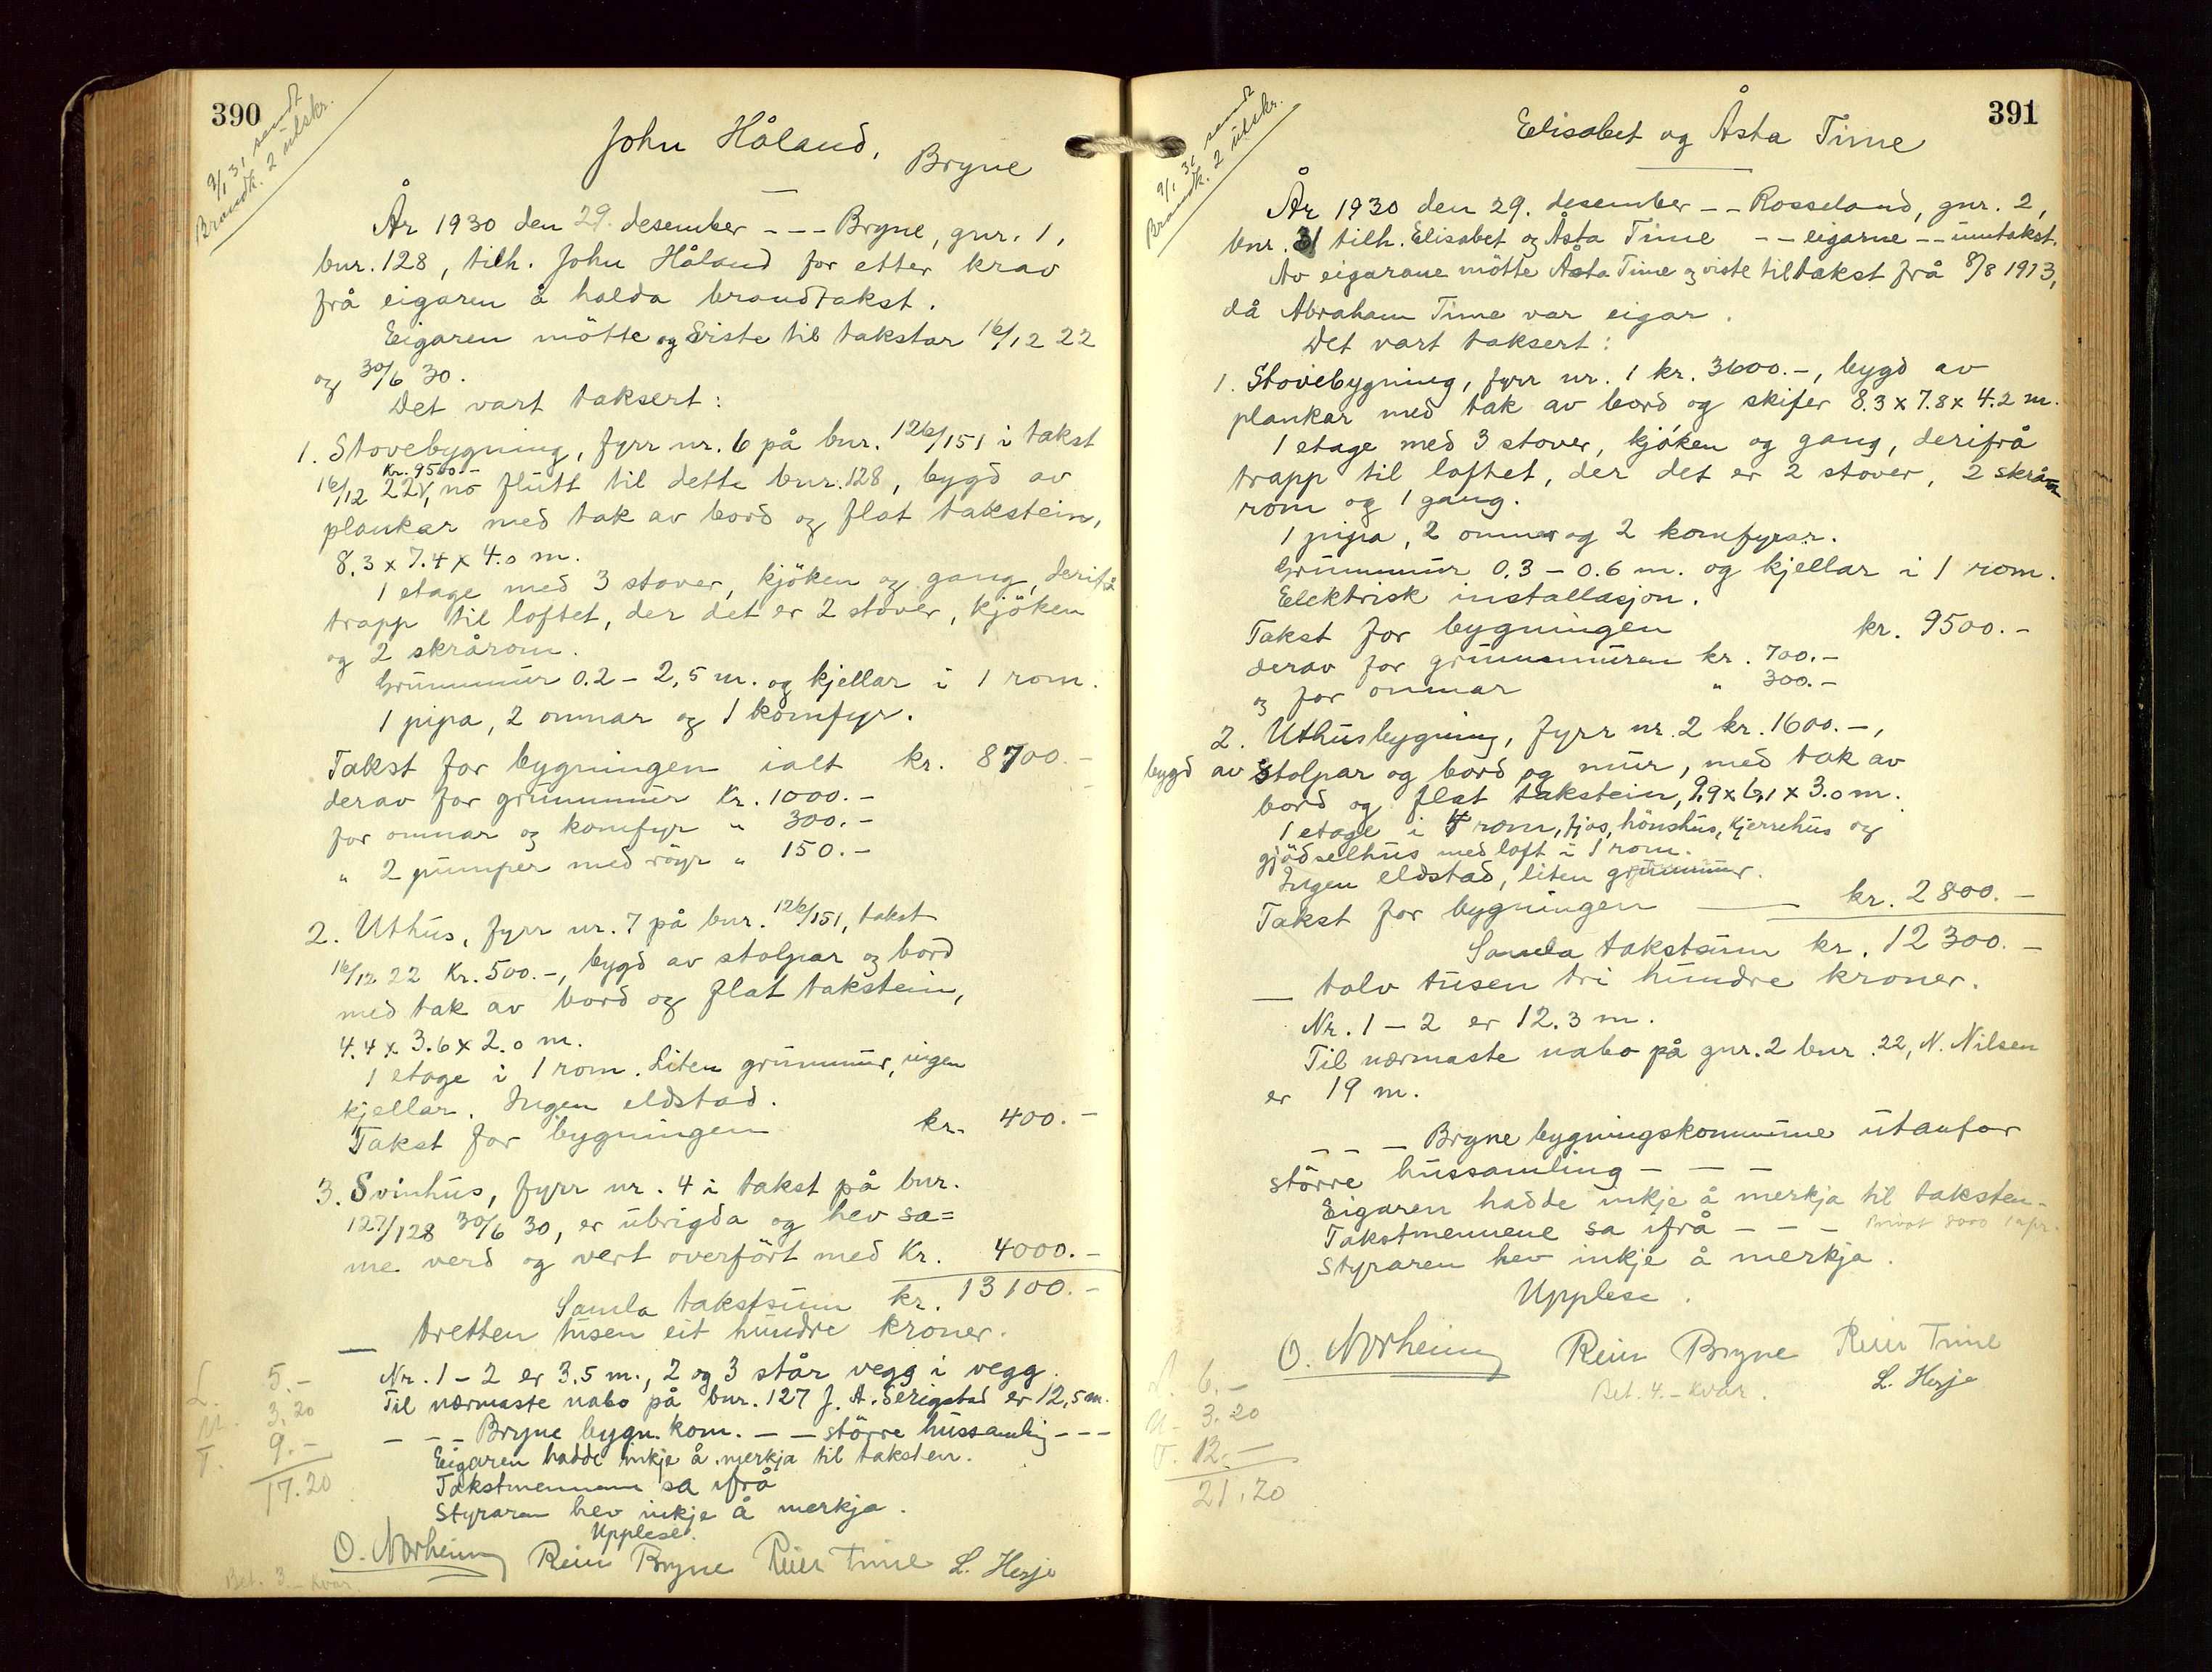 390
9/1 31 sendt
Brandk. 2 utskr.
John Håland,
Bryne
År 1930 den 29. desember - - - Bryne, gnr. 1,
bnr. 128, tilh. John Håland for etter krav
frå eigaren å halda brandtakst.
Eigaren mötte og viste til takstar 16/12 22
og 30/6 30.
Det vart taksert:
1. Stovebygning, fyrr nr. 6 på bnr. 126/151 i takst
kr. 9500.-
16/12 22, no flutt til dette bnr. 128, bygd av
plankar med tak av bord og flat takstein,
8.3 x 7.4 x 4.0 m.
1 etage med 3 stover, kjöken og gang, derifrå
trapp til loftet, der det er 2 stover, kjöken
og 2 skrårom.
Grunnmur 0.2 - 2,5 m. og kjellar i 1 rom.
1 pipa, 2 omnar og 1 komfyr.
Takst for bygningen ialt kr. 8700.-
derav for grunnmur kr. 1000.-
for omnar og komfyr " 300.-
" 2 pumper med röyr " 150.-
2. Uthus, fyrr nr. 7 på bnr. 126/151, takst
16/12 22 kr. 500.-, bygd av stolpar og bord
med tak av bord og flat takstein,
4.4 x 3.6 x 2.0 m.
1 etage i 1 rom. Liten grunnmur, ingen
kjellar. Ingen eldstad.
Takst for bygningen kr. 400.-
3. Svinhus, fyrr nr. 4 i takst på bnr.
127/128 30/6 30, er ubrigda og hev sa=
me verd og vert overfört med kr. 4000.-
Samla takstsum kr. 13100.-
— tretten tusen eit hundre kroner.
Nr. 1 - 2 er 3.5 m., 2 og 3 står vegg i vegg.
Til nærmaste nabo på bnr. 127 J. A. Serigstad er 12,5 m.
- - - Bryne bygn. kom. - - större hussamling - - -
Eigaren hadde inkje å merkja til taksten.
Takstmennene sa ifrå
Styraren hev inkje å merkja.
Upplese.
L. 5.-
U. 3.20
T. 9.-
17.20
O. Norheim Reier Bryne Reier Time L. Herje
Bet. 3.- kvar.
391
9/1 31 sendt
Brandk. 2 utskr.
Elisabet og Åsta Time
År 1930 den 29. desember - - Rosseland, gnr. 2,
bnr. 31 tilh. Elisabet og Åsta Time - - eigarne - - umtakst.
Av eigarane mötte Åsta Time og viste til takst frå 8/8 1913,
då Abraham Time var eigar.
Det vart taksert:
1. Stovebygning, fyrr nr. 1 kr. 3600.-, bygd av
plankar med tak av bord og skifer 8.3 x 7.8 x 4.2 m.
1 etage med 3 stover, kjöken og gang, derifrå
trapp til loftet, der det er 2 stover, 2 skrå=
rom og 1 gang.
1 pipa, 2 omnar og 2 komfyrar.
Grunnmur 0.3 - 0.6 m. og kjellar i 1 rom.
Elektrisk installasjon.
Takst for bygningen kr. 9500.-
derav for grunnmuren kr. 700.-
og for omnar " 300.-
2. Uthusbygning, fyrr nr. 2 kr. 1600.-,
bygd av stolpar og bord og mur, med tak av
bord og flat takstein, 9.9 x 6.1 x 3.0 m.
1 etage i 4 rom, fjos, hönshus, kjerrehus og
gjödselhus med loft i 1 rom.
Ingen eldstad, liten grunnmur.
Takst for bygningen — kr. 2800.-
Samla takstsum kr. 12300.-
— tolv tusen tri hundre kroner.
Nr. 1 - 2 er 12.3 m.
Til nærmaste nabo på gnr. 2 bnr. 22, N. Nilsen
er 19 m.
- - - Bryne bygningskommune utanfor
större hussamling - - -
Eigaren hadde inkje å merkja til taksten-
Takstmennene sa ifrå - - -
Styraren hev inkje å merkja.
Upplese.
O. Norheim Reier Bryne Reier Time
L. Herje
Bet. 4.- kvar.
L. 6.-
U. 3.20
T. 12.-
21.20